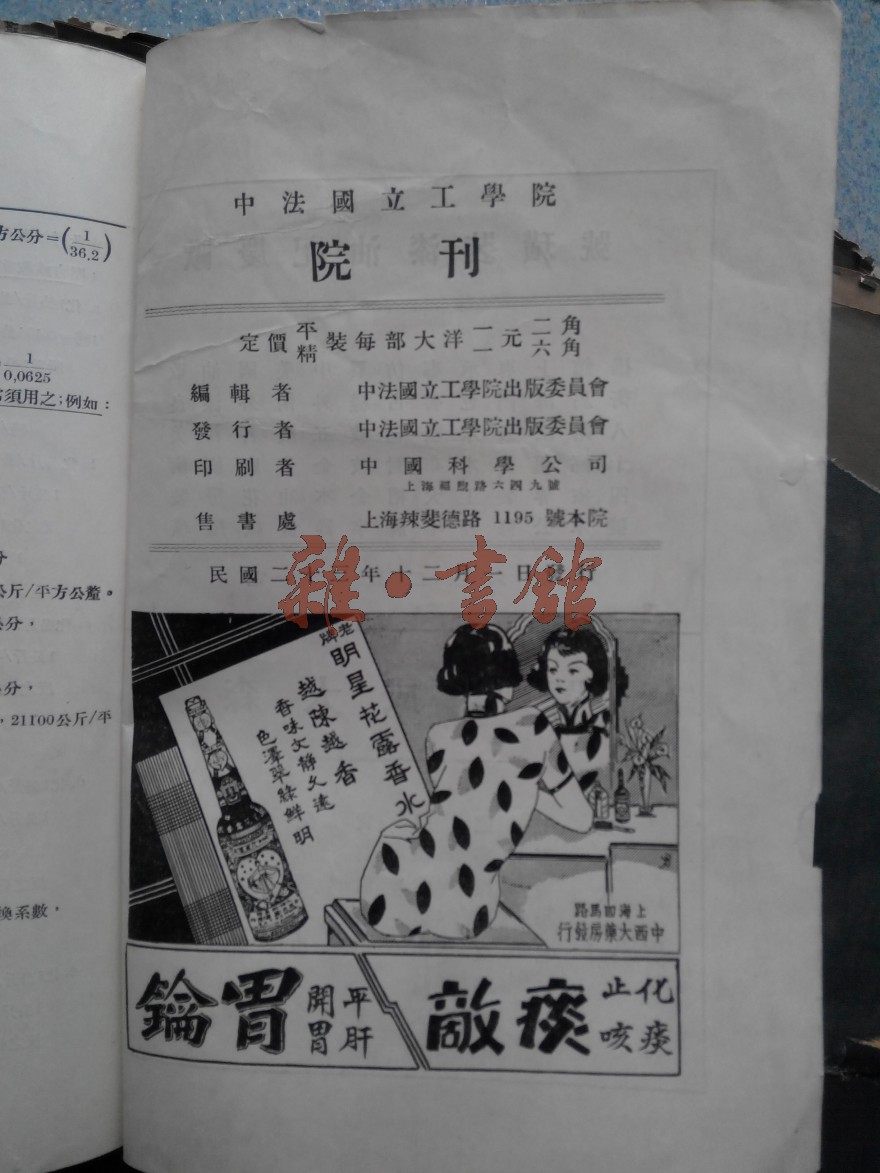 方公分=(1/36,2)
1
0,0625
須用之;例如:
公斤/平方公釐。
公分,
公分,
,21100公斤/平
換系數,
中法國立工學院
院刊
定價平裝每部大洋一元二角
精 一 六角
編輯者 中法國立工學院出版委員會
發行者 中法國立工學院出版委員會
印刷者 中國科學公司
上海福煦路六四九號
售書處 上海辣斐德路 1195 號本院
民國二十 年十二月一日發行
雜·書館
老牌
明星花露香水
越陳越香
香味文靜久遠
色澤翠綠鮮明
上海四馬路
中西大藥房發行
化痰
止咳
痰敵
平肝
開胃
胃鑰